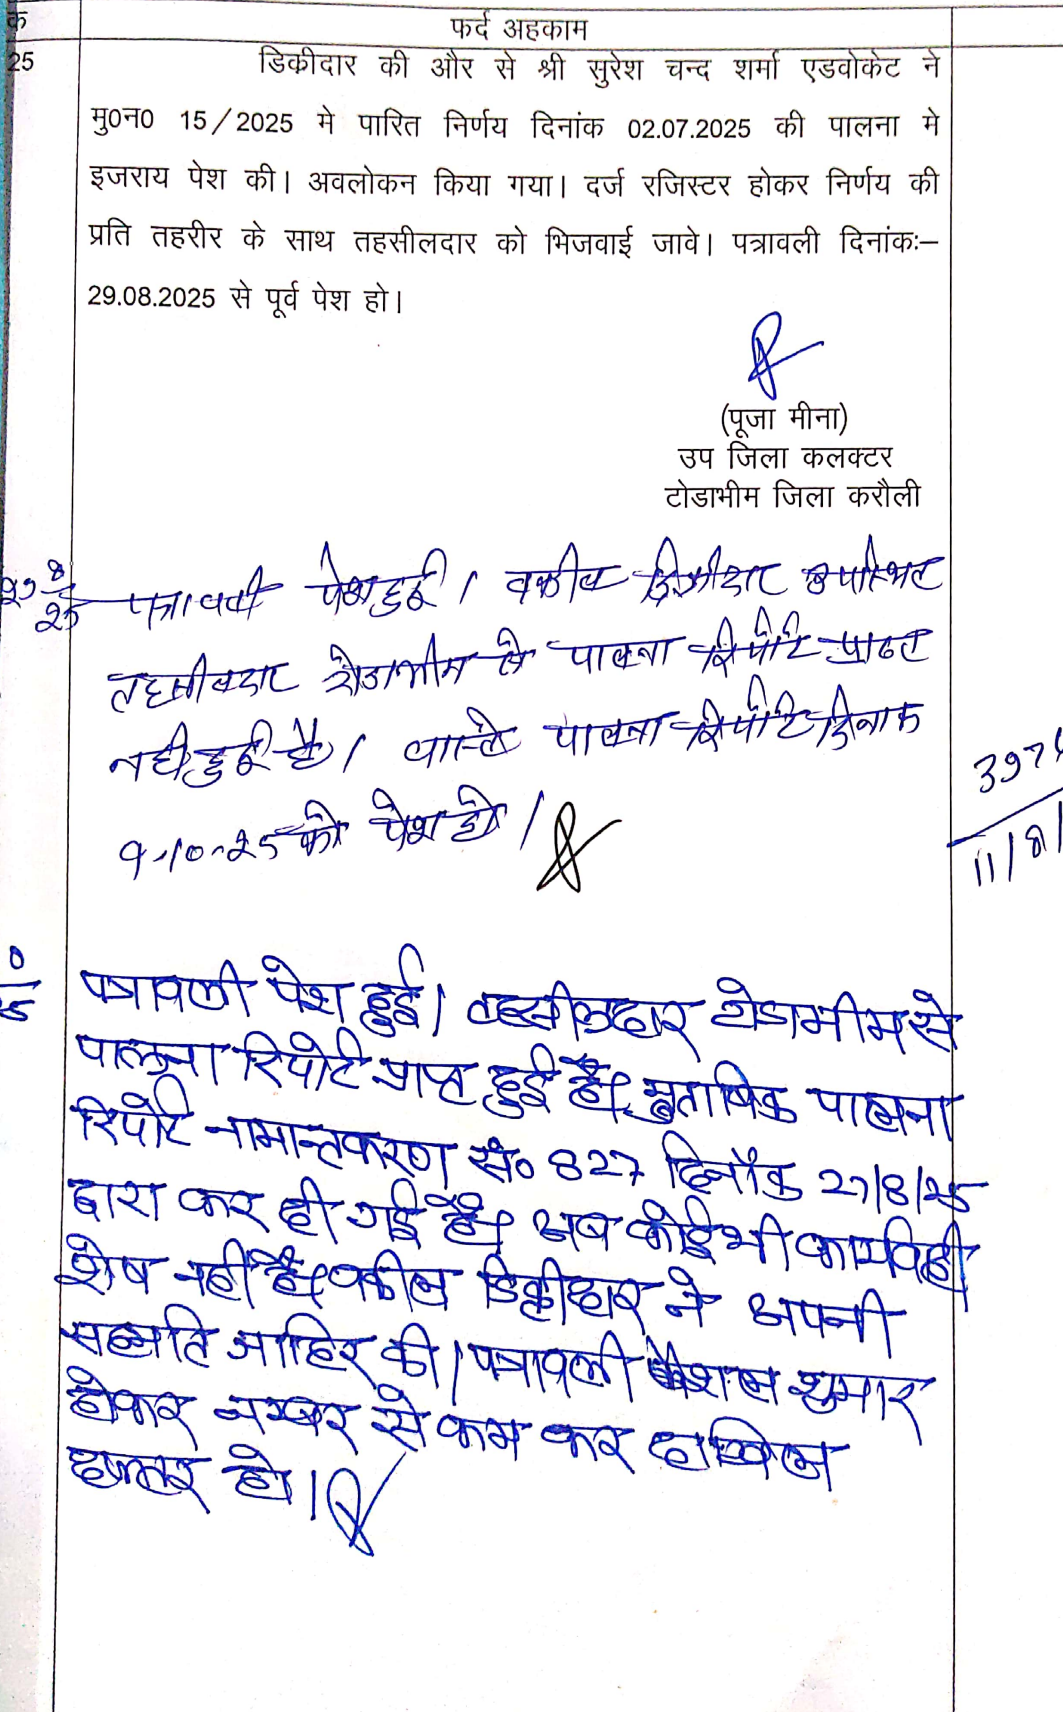 क
फर्द अहकाम
25
डिक्रीदार की और से श्री सुरेश चन्द शर्मा एडवोकेट ने
मु0न0 15/2025 मे पारित निर्णय दिनांक 02.07.2025 की पालना मे
इजराय पेश की। अवलोकन किया गया। दर्ज रजिस्टर होकर निर्णय की
प्रति तहरीर के साथ तहसीलदार को भिजवाई जावे। पत्रावली दिनांकः–
29.08.2025 से पूर्व पेश हो।
(पूजा मीना)
उप जिला कलक्टर
टोडाभीम जिला करौली
29/8/25 पत्रावली पेश हुई। वकील डिक्रीदार उपस्थित
तहसीलदार टोडाभीम से पालना रिपोर्ट प्राप्त
नही हुई है। वास्ते पालना रिपोर्ट दिनांक
9-10-25 को पेश हो।
397
11/8/
पत्रावली पेश हुई। तहसीलदार टोडाभीम से
पालना रिपोर्ट प्राप्त हुई है। मुताबिक पालना
रिपोर्ट नामान्तकरण सं० 827 दिनाँक 27/8/25
द्वारा कर दी गई है। अब कोई भी कार्यवाही
शेष नहीं है। वकील डिक्रीदार ने अपनी
सहमति जाहिर की। पत्रावली फैशल शुमार
होकर नम्बर से कम कर दाखिल
दफ्तर हो।